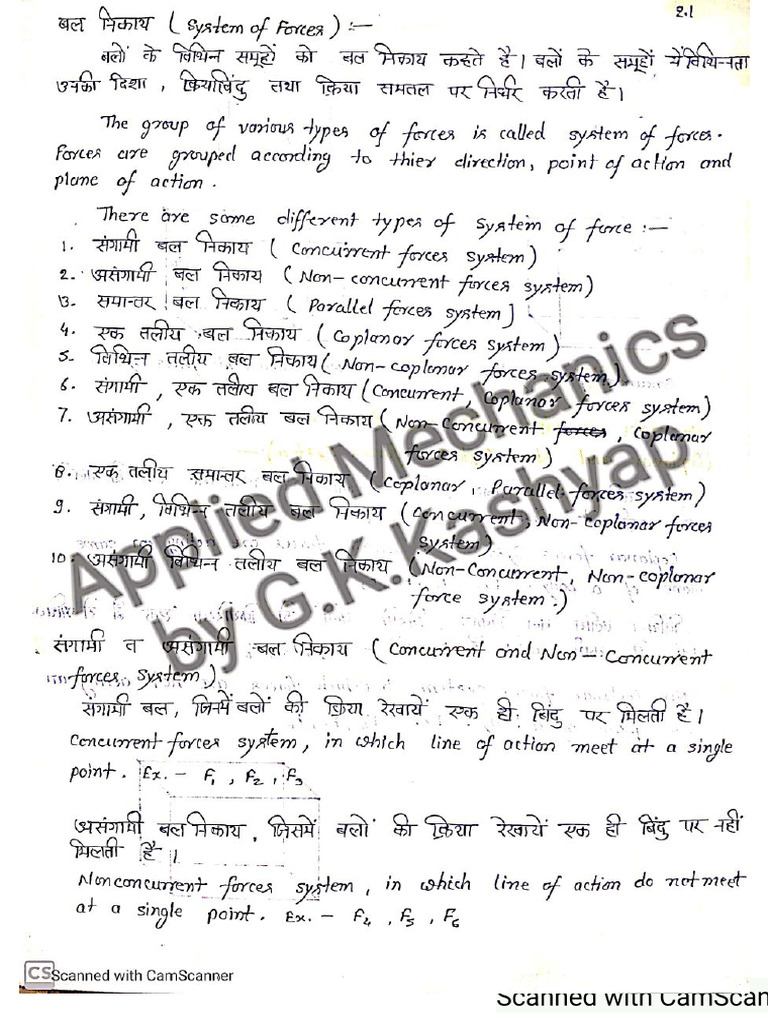 2.1
बल निकाय ( System of Forces ) :—
बलों के विभिन्न समूहों को बल निकाय कहते है। बलों के समूहों में विभिन्नता
उनकी दिशा , क्रियाबिंदु तथा क्रिया समतल पर निर्भर करती है।
The group of various types of forces is called system of forces.
Forces are grouped according to thier direction, point of action and
plane of action .
There are some different types of system of force :—
1. संगामी बल निकाय ( Concurrent forces system )
2. असंगामी बल निकाय ( Non-concurrent forces system )
3. समान्तर बल निकाय ( Parallel forces system )
4. एक तलीय बल निकाय ( Coplanar forces system )
5. विभिन्न तलीय बल निकाय ( Non-coplanar forces system )
6. संगामी , एक तलीय बल निकाय ( Concurrent, Coplanar forces system )
7. असंगामी , एक तलीय बल निकाय ( Non-Concurrent forces , Coplanar
forces system )
8. एक तलीय समान्तर बल निकाय ( Coplanar , Parallel forces system )
9. संगामी , विभिन्न तलीय बल निकाय ( Concurrent , Non-Coplanar forces
system )
10. असंगामी विभिन्न तलीय बल निकाय ( Non-Concurrent , Non-coplanar
force system . )
Applied Mechanics
by G.K.Kashyap
संगामी व असंगामी बल निकाय ( Concurrent and Non – Concurrent
forces system )
संगामी बल , जिनमें बलों की क्रिया रेखायें एक ही बिंदु पर मिलती है।
Concurrent forces system , in which line of action meet at a single
point . Ex. – F1 , F2 , F3
असंगामी बल निकाय , जिसमें बलों की क्रिया रेखायें एक ही बिंदु पर नहीं
मिलती है ।
Nonconcurrent forces system , in which line of action do not meet
at a single point . Ex. – F4 , F5 , F6
CS Scanned with CamScanner
Scanned with CamScan